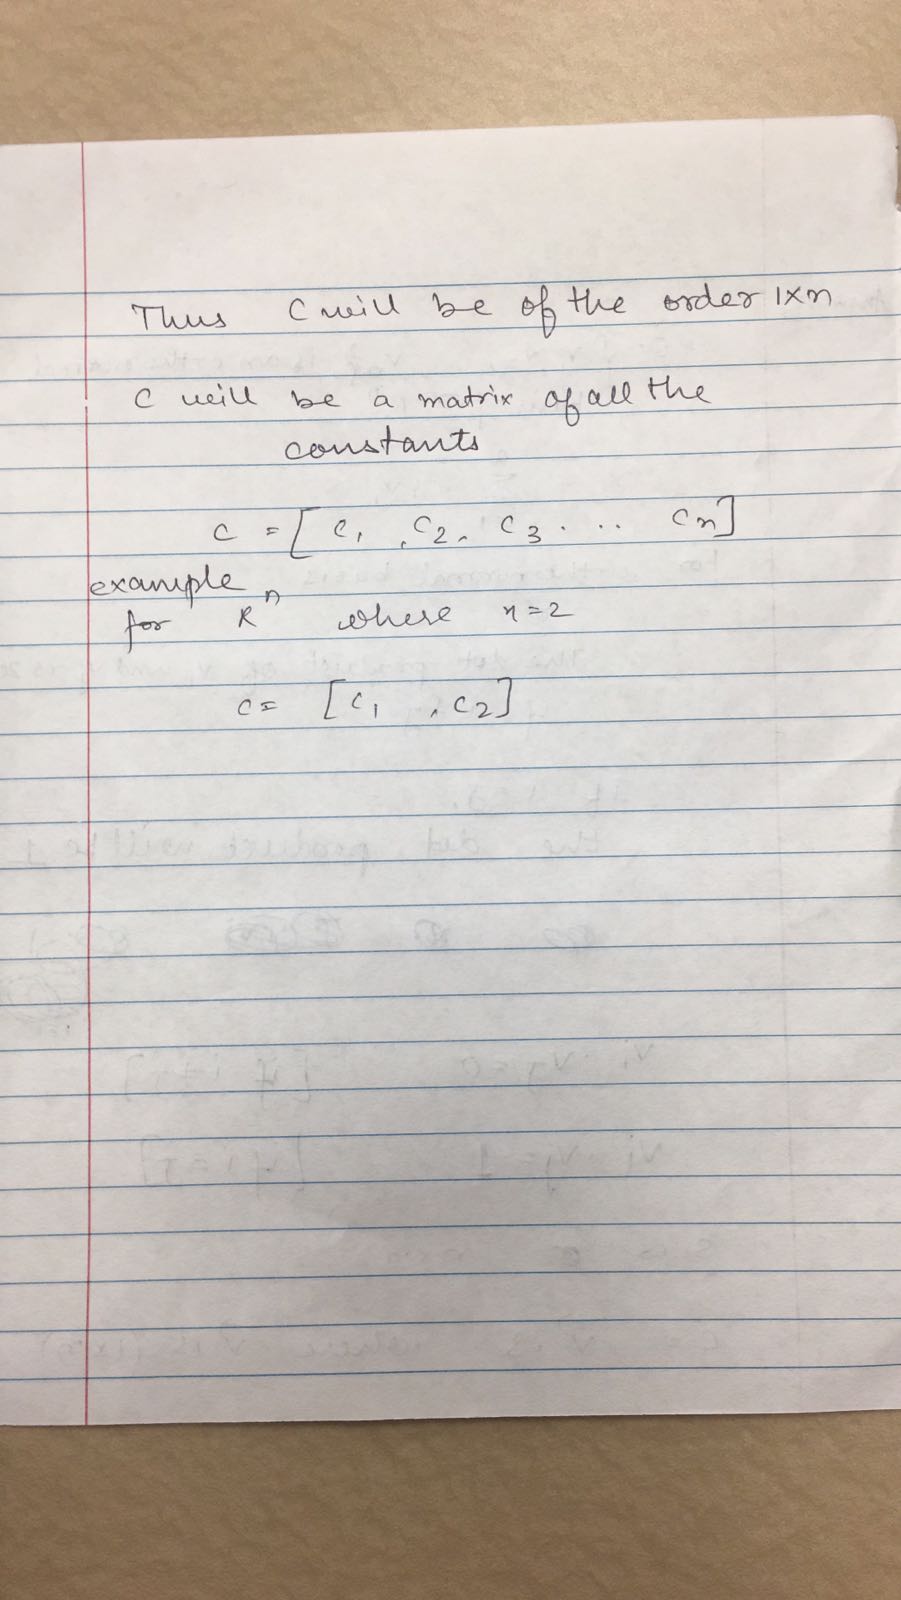 Thus C will be of the order 1×n
C will be a matrix of all the
constants
c = [ c₁ , c₂, c₃ . .. cₙ]
example
for Rⁿ where n=2
c= [c₁ , c₂]